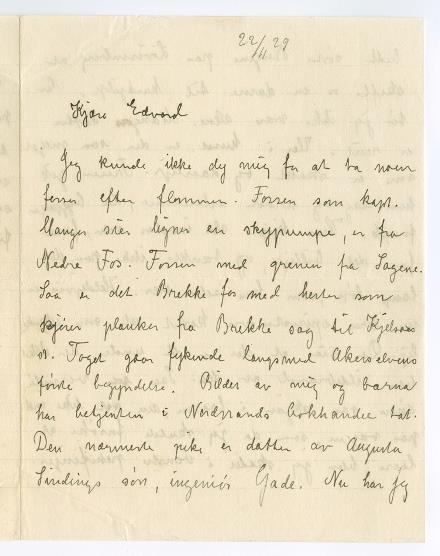 22/4 29
Kjære Edvard
Jeg kunde ikke dy mig for at ta noen
fosser efter flommen. Fossen som kapt.
Mangor sier ligner en skypumpe, er fra
Nedre Fos. Fossen med grenen fra Sagene.
Saa er det Brekke fos med hester som
skjører planker fra Brekke sag til Kjelsaas
st. Toget gaar fykende langsmed Akerselvens
første begyndelse. Bilder av mig og barna
har betjenten i Nordstrands bokhandel tat.
Den nærmeste pike er datter av Augusta
Sindings sønn, ingeniør Gade. Nu har jeg